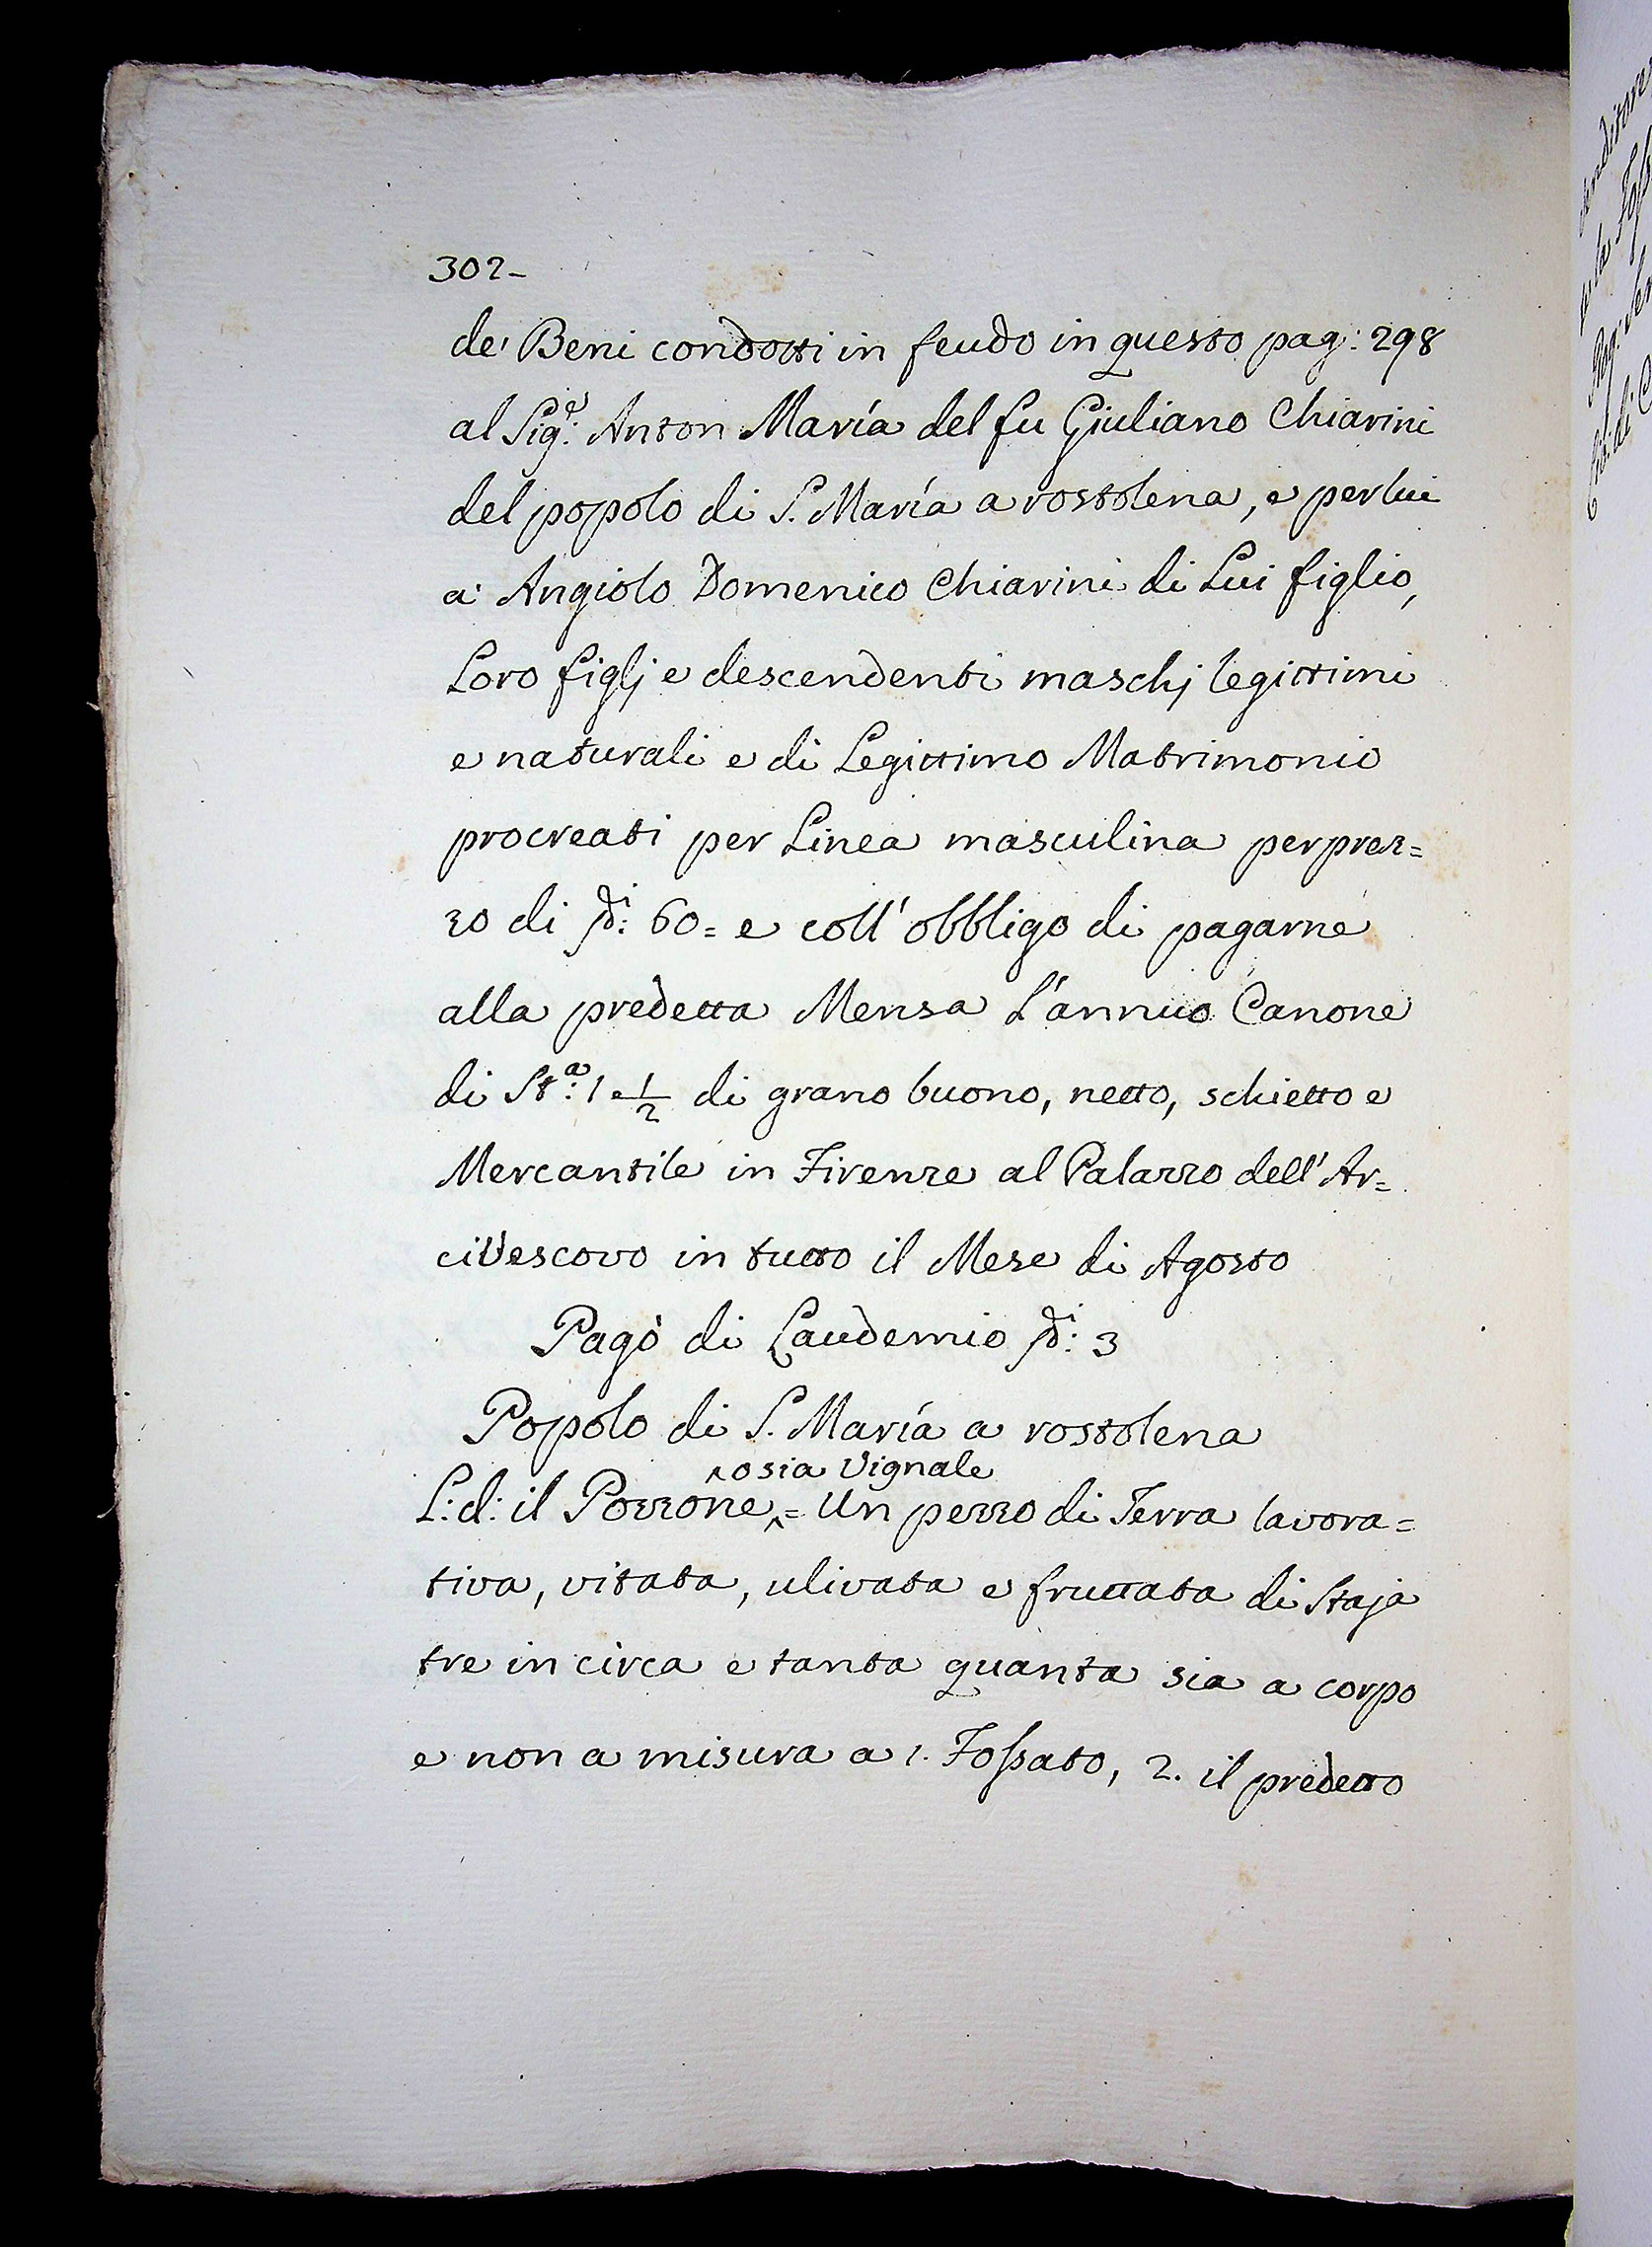 302-
de' Beni condotti in feudo in questo pag: 298
al Sig.e Anton María del fu Giuliano Chiarini
del popolo di S. María a rostolena, e per lui
a' Angiolo Domenico Chiarini di Lui figlio,
Loro figlj e descendenti maschj legittimi
e naturali e di Legittimo Matrimonio
procreati per Linea masculina per prez=
zo di 60= e coll' obbligo di pagarne
alla predetta Mensa L'annuo Canone
di St.a: 1 e 1/2 di grano buono, netto, schietto e
Mercantile in Firenze al Palazzo dell' Ar=
civescovo in tutto il Mese di Agosto
Pagò di Laudemio 3
Popolo di S. María a rostolena
^o sia Vignale
L: d: il Pozzone^= Un pezzo di Terra lavora=
tiva, vitata, ulivata e fruttata di Staja
tre in circa e tanta quanta sia a corpo
e non a misura a 1. Fossato, 2. il predetto